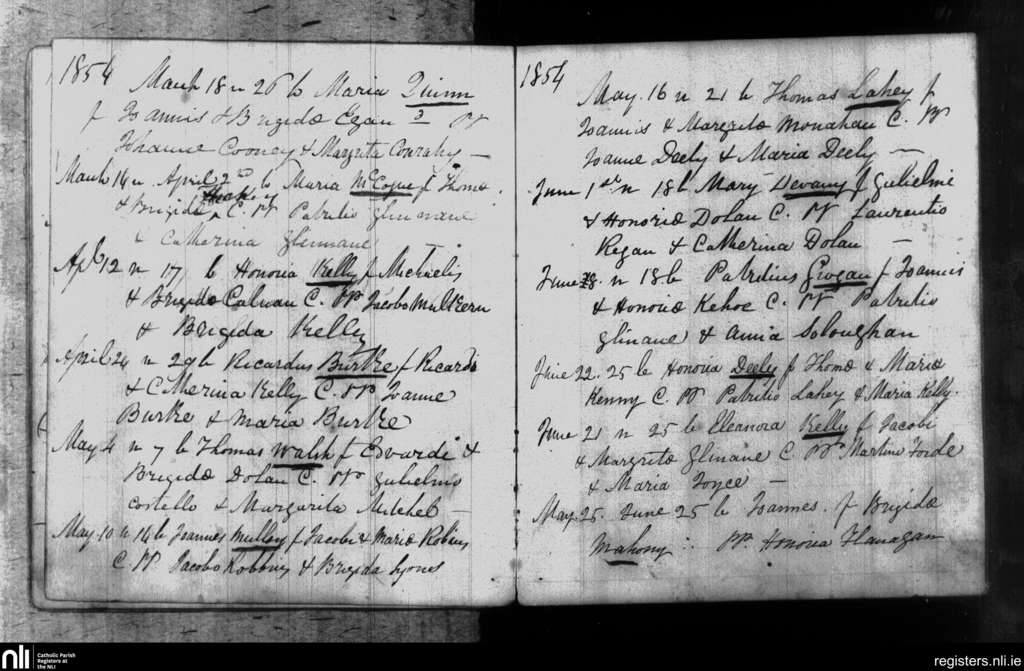 1854
March 18 n 26 b Maria Quinn
f Joannis & Brigidæ Egan C PP
Johanne Cooney & Margrita Conrahy —
March 14 n April 2nd b Maria McCogue f Thomæ
& Brigidæ C. PP Patritio Glinnane
& Catherina Glinnane
Apl 12 n 17 b Honoria Kelly f Michaelis
& Brigidæ Calnan C. PP Jacobo Mulkern
& Brigida Kelly
April 24 n 29 b Ricardus Burke f Ricardi
& Catherina Kelly C. PP Joanne
Burke & Maria Burke
May 4 n 7 b Thomas Walsh f Edvardi &
Brigidæ Dolan C. PP Gulielmo
Costello & Margarita Mitchel —
May 10 n 14 b Joannes Mulloy f Jacobi & Mariæ Robins
C PP Jacobo Robbins & Brigida Lyons
1854
May. 16 n 21 b Thomas Lahey f
Joannis & Margritæ Monahan C. PP
Joanne Deely & Maria Deely —
June 1st n 18 b Mary Devaney f Gulielmi
& Honoriæ Dolan C. PP Laurentio
Regan & Catherina Dolan —
June n 18 b Patritius Grogan f Joannis
& Honoriæ Kehoe C. PP Patritio
Glinane & Annia Soloughan
June 22. 25 b Honoria Deely f Thomæ & Mariæ
Kenny C. PP Patritio Lahey & Maria Kelly.
June 21 n 25 b Eleanora Kelly f Jacobi
& Margritæ Glinane C PP Martino Forde
& Maria Joyce —
May 25. June 25 b Joannes. f Brigidæ
Mahony : PP. Honoria Flanagan
nli
Catholic Parish
Registers at
the NLI
registers.nli.ie